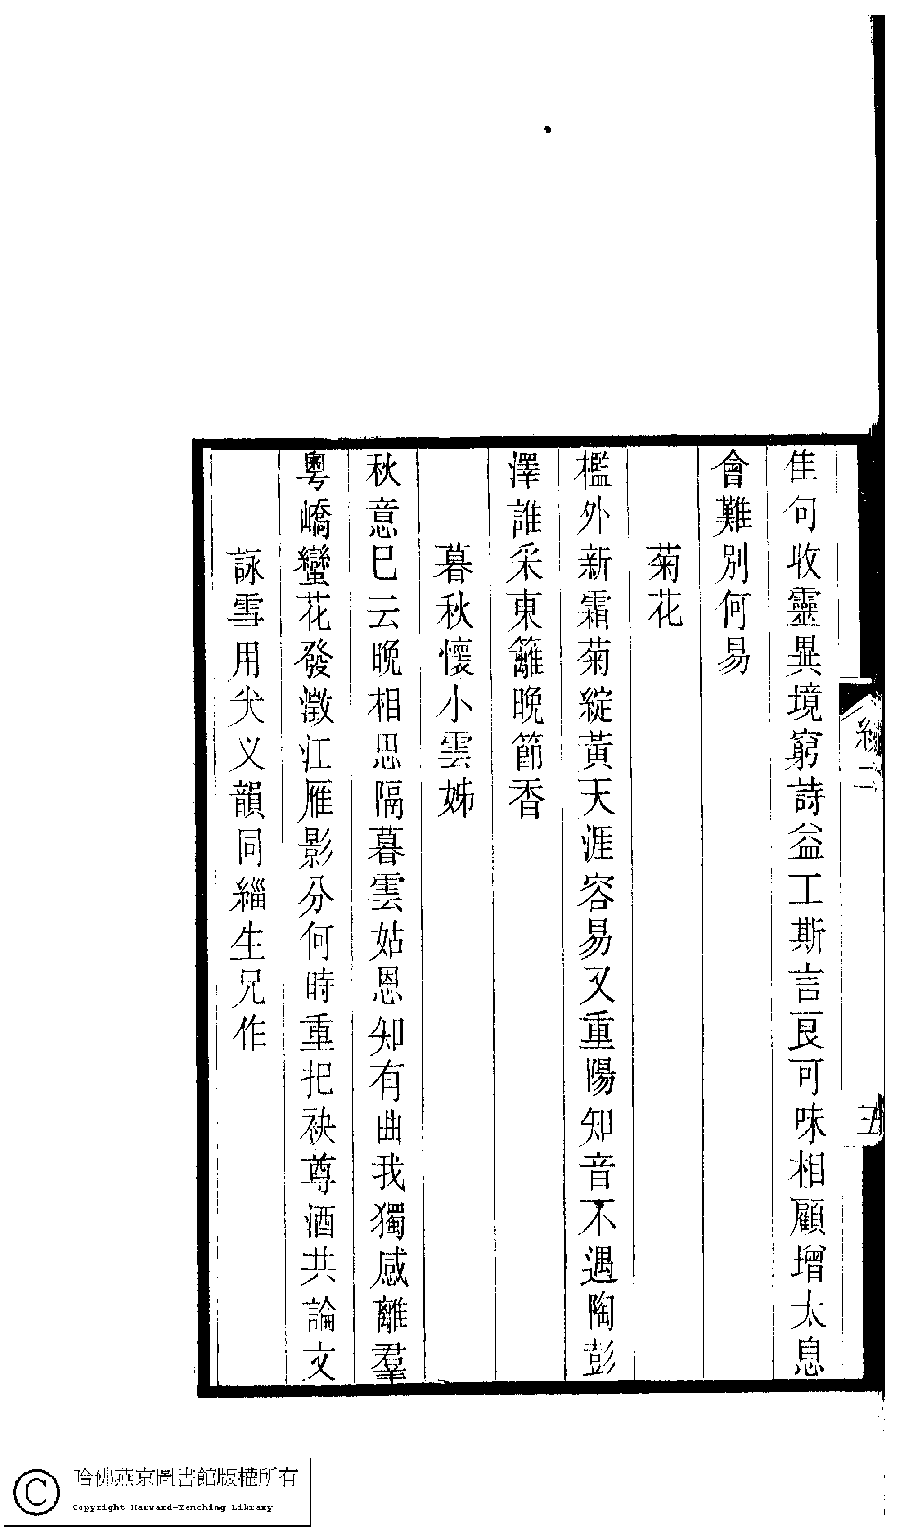 佳句收靈異境窮詩益工斯言良可味相顧增太息
會難別何易
菊花
檻外新霜菊綻黃天涯容易又重陽知音不遇陶彭
澤誰采東籬晚節香
暮秋懷小雲姊
秋意已云晚相思隔暮雲姑恩知有曲我獨感離羣
粵嶠蠻花發澂江雁影分何時重把袂尊酒共論文
詠雪用尖义韻同緇生兄作
二
三
哈佛燕京圖書館版權所有
Copyright Harvard-Yenching Library